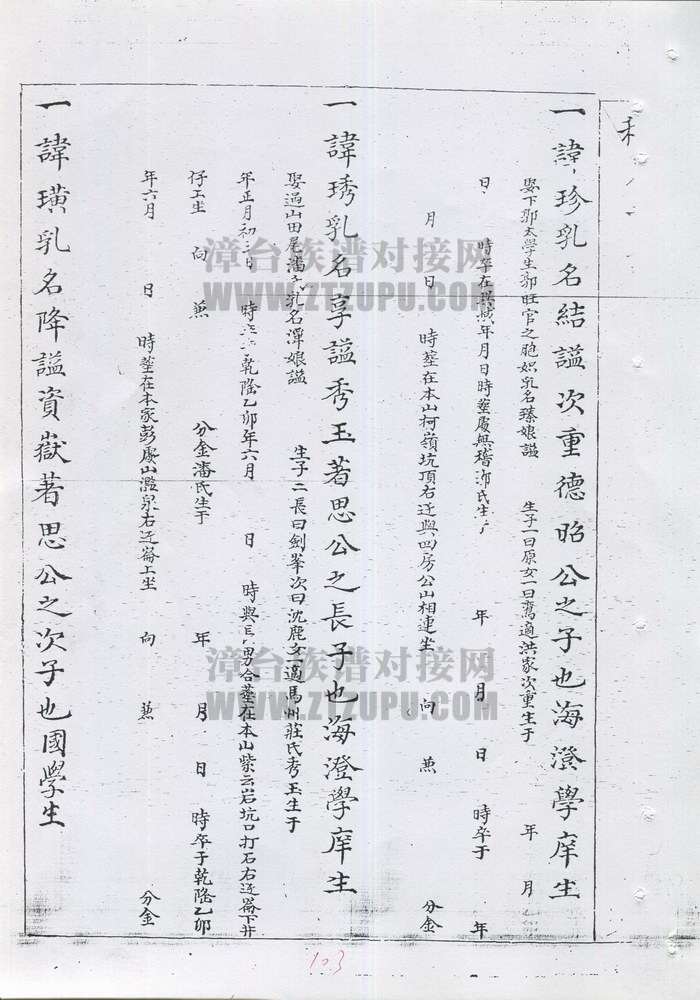 一諱珍乳名結謚次重德昭公之子也海澄學庠生
娶下郭太學生郭旺官之胞姒乳名臻娘謚 生子一曰原女一曰鸞適洪家次重生于 年 月
日 時卒在異域年月日時塟處無稽郭氏生于 年 月 日 時卒于 年
月 日 時塟在本山柯嶺坑頂右迋與四房公山相連坐 向 兼 分金
一諱琇乳名享謚秀玉著思公之長子也海澄學庠生
娶過山田尾潘氏乳名潭娘謚 生子二長曰劍峯次曰沈鹿女一適馬州莊氏秀玉生于
年正月初三日 時 乾隆乙卯年六月 日 時與長男合塟在本山紫云岩坑口打石右迋崙下井
仔工坐 向 兼 分金潘氏生于 年 月 日 時卒于乾隆乙卯
年六月 日 時塟在本家彭厝山濫泉右迋崙上坐 向 兼 分金
一諱璜乳名降謚資嶽著思公之次子也國學生
漳台族谱对接网
WWW.ZTZUPU.COM
漳台族谱对接网
WWW.ZTZUPU.COM
103